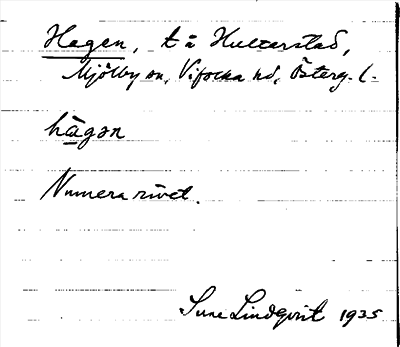 Hagen, t å Hulterstad,
Mjölby sn, Vifolka hd, Österg. l.
hàgən
Numera rivet.
Sune Lindqvist 1935